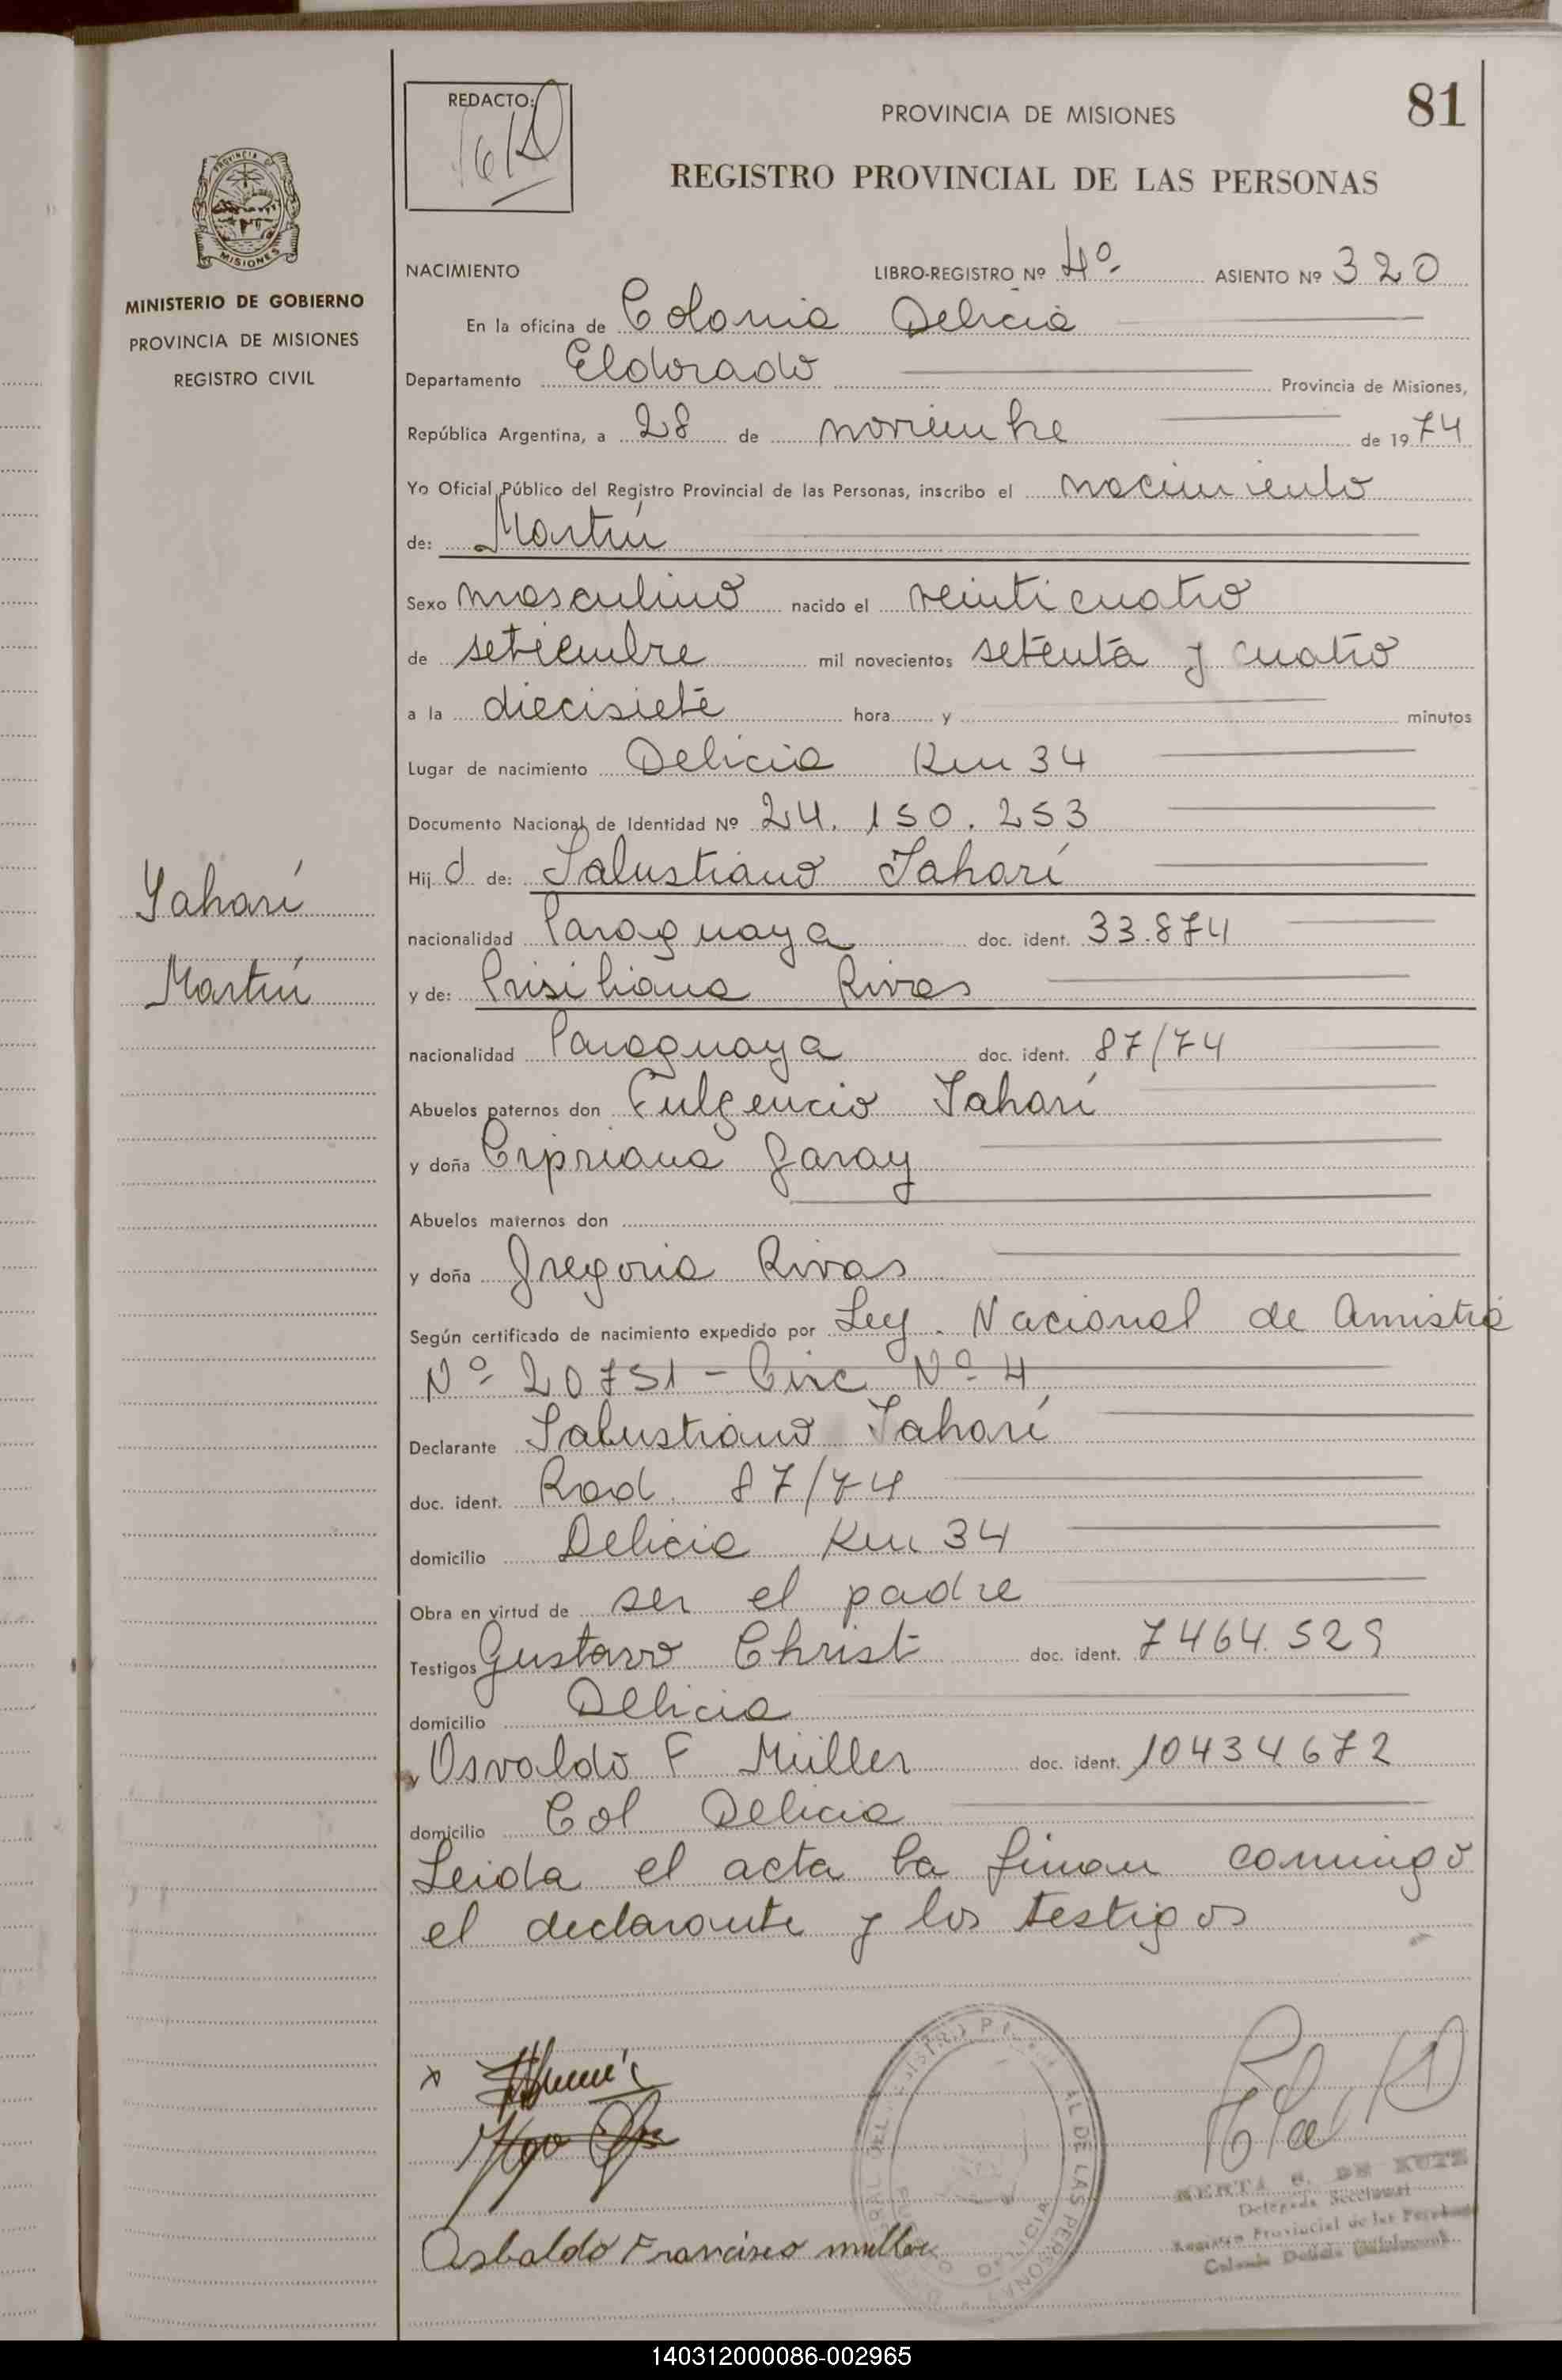 REDACTO:
PROVINCIA DE MISIONES
81
REGISTRO PROVINCIAL DE LAS PERSONAS
MINISTERIO DE GOBIERNO
PROVINCIA DE MISIONES
REGISTRO CIVIL
NACIMIENTO LIBRO-REGISTRO Nº 4º ASIENTO Nº 320
En la oficina de Colonia Delicia
Departamento Eldorado Provincia de Misiones,
República Argentina, a 28 de noviembre de 1974
Yo Oficial Público del Registro Provincial de las Personas, inscribo el nacimiento
de: Martín
Sexo masculino nacido el veinticuatro
de setiembre mil novecientos setenta y cuatro
a la diecisiete hora y minutos
Lugar de nacimiento Delicia Km 34
Documento Nacional de Identidad Nº 24.150.253
Hij o de: Salustiano Taharí
nacionalidad Paraguaya doc. ident. 33.874
y de: Prisiliana Rivas
nacionalidad Paraguaya doc. ident. 87/74
Abuelos paternos don Fulgencio Taharí
y doña Cipriana Garay
Abuelos maternos don
y doña Gregoria Rivas
Según certificado de nacimiento expedido por Ley. Nacional de Amistia
Nº 20751 - Circ Nº 4
Declarante Salustiano Taharí
doc. ident. Rad. 87/74
domicilio Delicia Km 34
Obra en virtud de ser el padre
Testigos Gustavo Christ doc. ident. 7464.529
domicilio Delicia
y Osvaldo F Müller doc. ident. 10434672
domicilio Col Delicia
Leida el acta la firman conmigo
el declarante y los testigos
Martín
x
Osbaldo Francisco muller
DE LAS PERSONAS
Delegada Seccional
Registro Provincial de las Personas
140312000086-002965